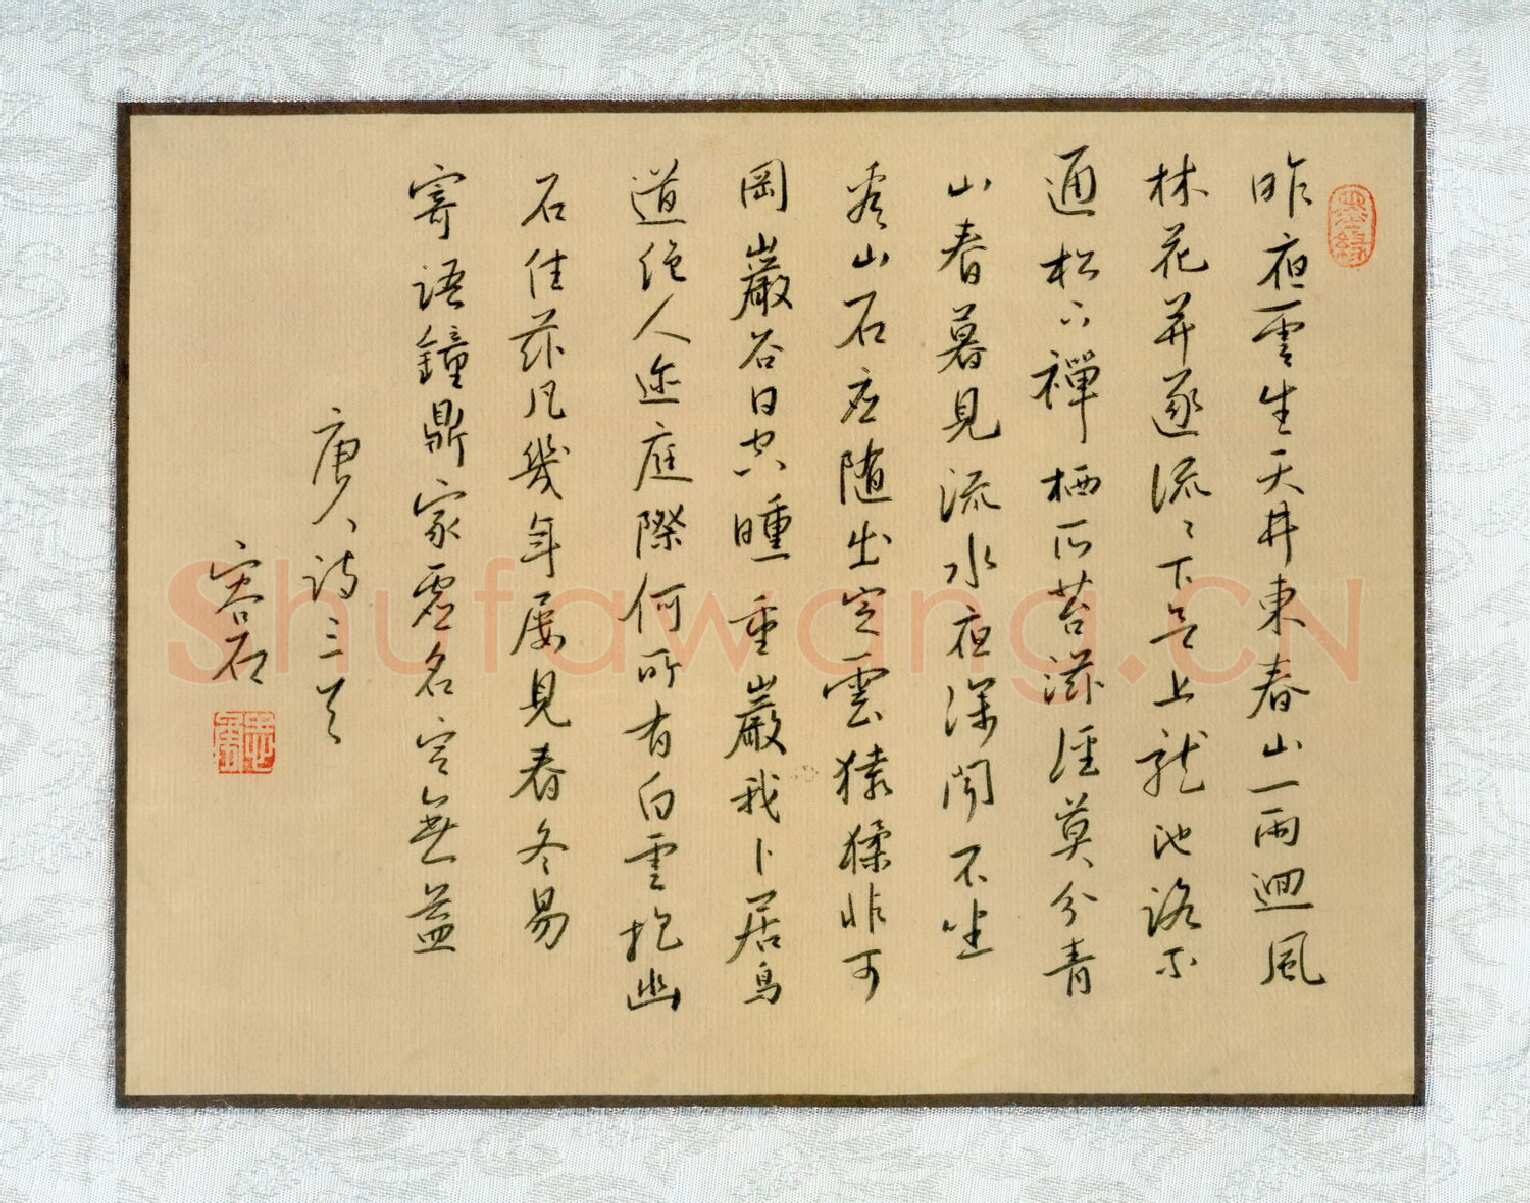 墨緣
昨夜雲生天井東春山一雨迴風
林花并逐流〻下上龍池路不
通松下禪栖所苔滋徑莫分青
山春暮見流水夜深聞不坐
看山石應隨出定雲猿猱非可
岡巖谷日空曛重巖我卜居鳥
道絕人迹庭際何所有白雲抱幽
石住茲凡幾年屢見春冬易
寄語鐘鼎家虛名定無益
唐人詩三首
容石
Shufawang.CN